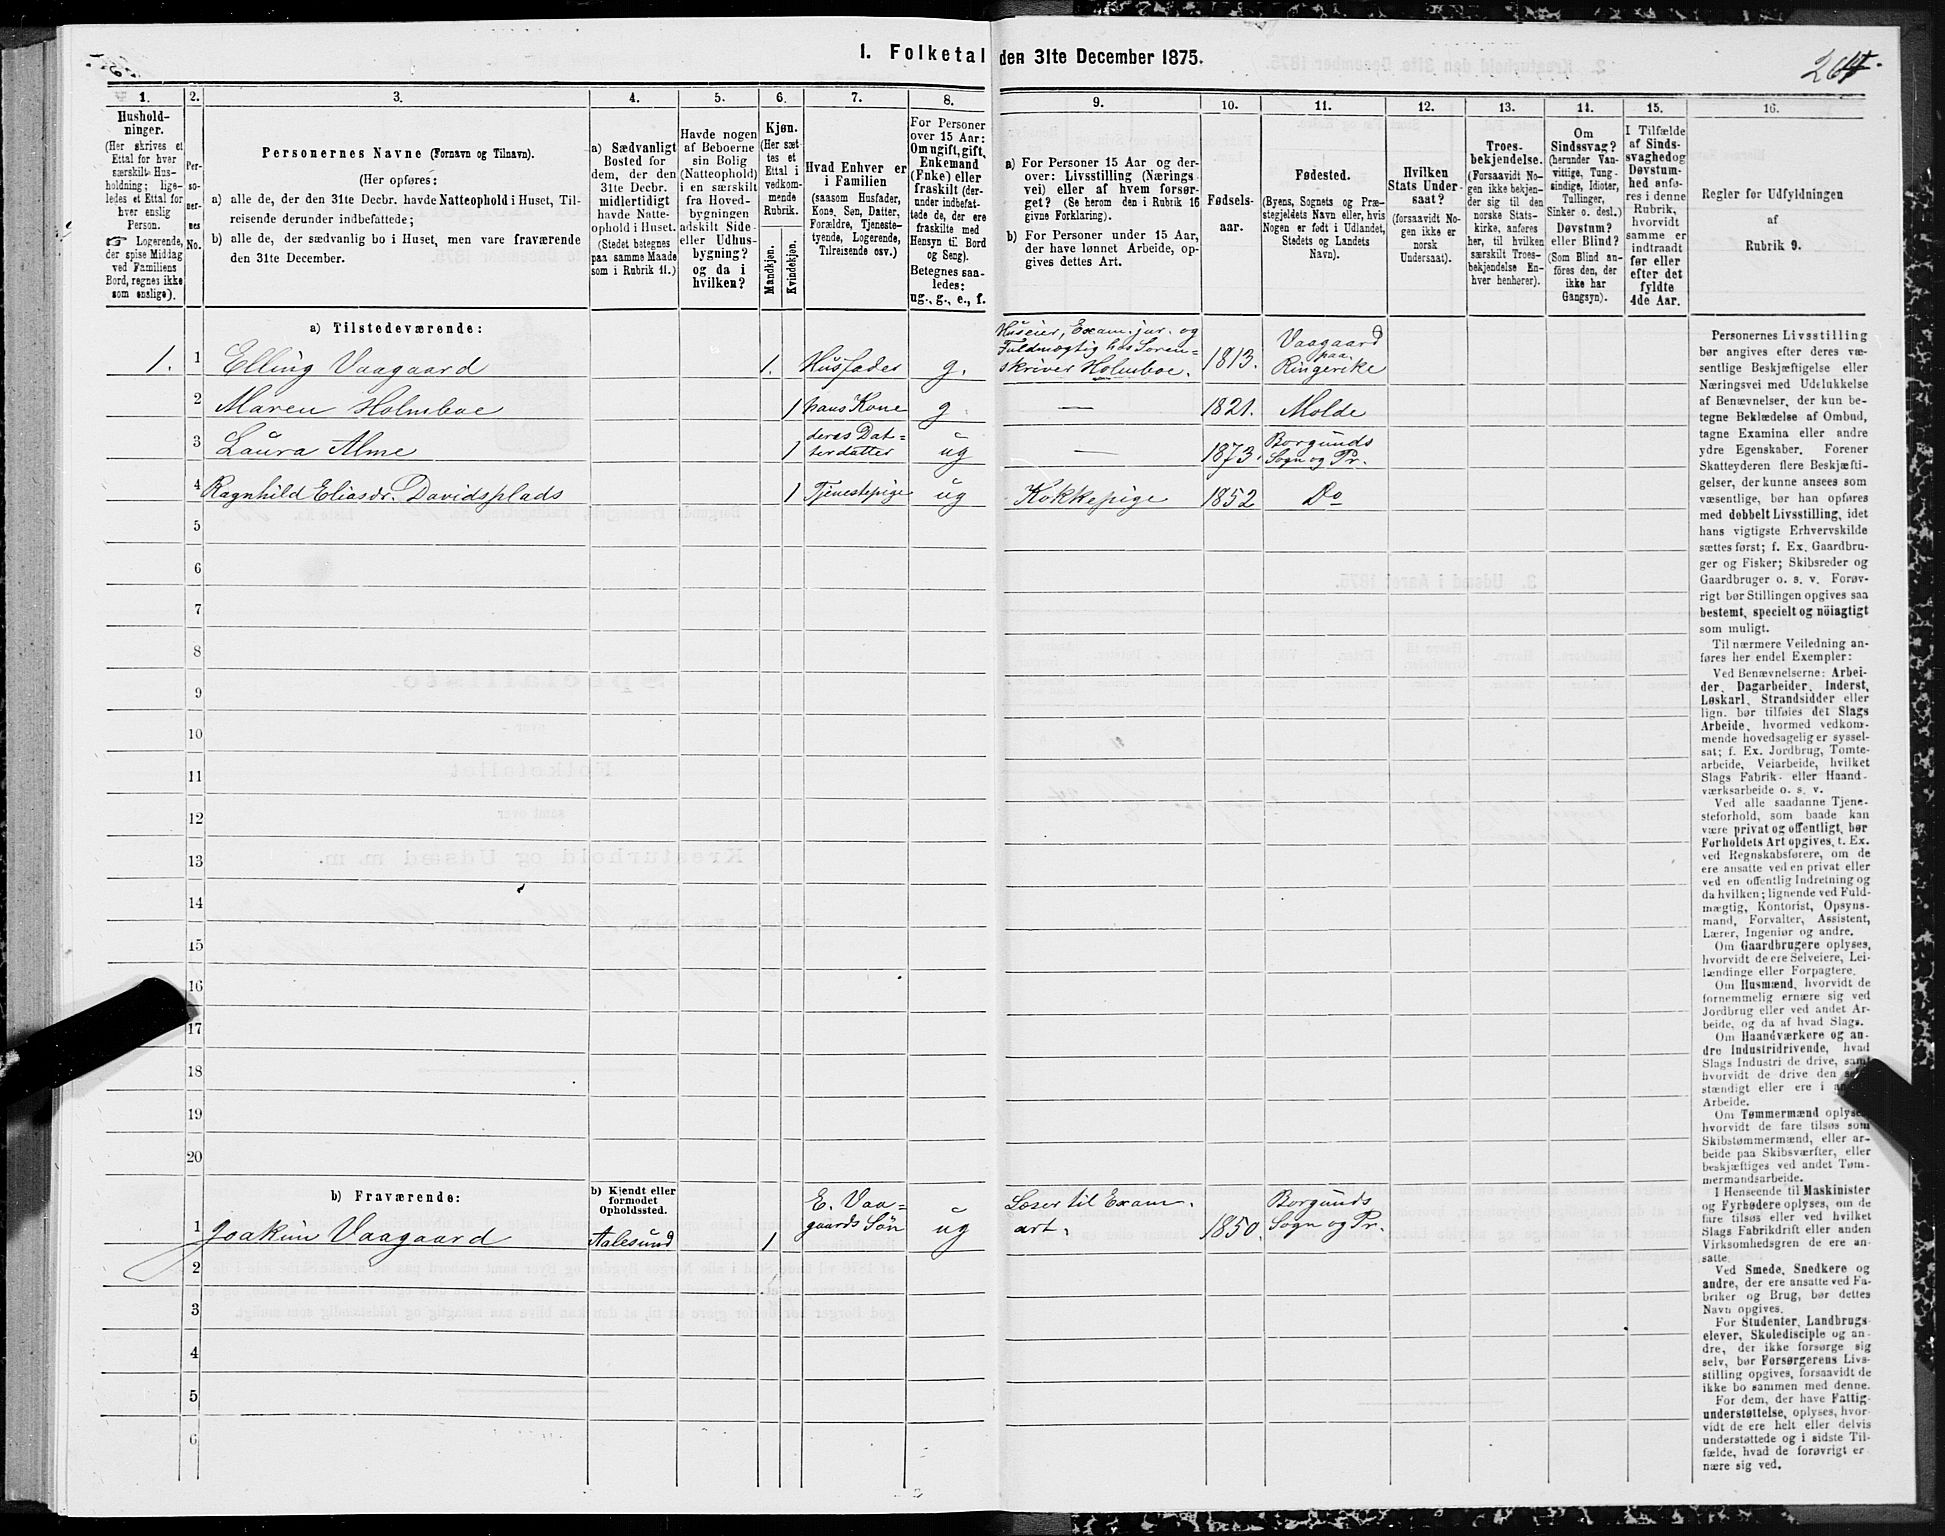 1. Folketal den 31te December 1875.
264.
1.
Hushold-
ninger.
(Her skrives et
Ettal for hver
særskilt Hus-
holdning; lige-
ledes et Ettal for
hver enslig
Person.
☞ Logerende,
der spise Middag
ved Familiens
Bord, regnes ikke
som enslige).
2.
Per-
so-
ner-
nes
No.
3.
Personernes Navne (Fornavn og Tilnavn).
(Her opføres:
a) alle de, der den 31te Decbr. havde Natteophold i Huset, Til-
reisende derunder indbefattede;
b) alle de, der sædvanlig bo i Huset, men vare fraværende
den 31te December.
4.
a) Sædvanligt
Bosted for
dem, der den
31te Decbr.
midlertidigt
havde Natte-
ophold i Huset.
(Stedet betegnes
paa samme Maade
som i Rubrik 11.)
5.
Havde nogen
af Beboerne
sin Bolig
(Natteophold)
i en særskilt
fra Hoved-
bygningen
adskilt Side-
eller Udhus-
bygning?
og da i
hvilken?
6.
Kjøn.
(Her sæt-
tes et
Ettal i
vedkom-
mende
Rubrik.
Mandkjøn.
Kvindekjøn.
7.
Hvad Enhver er
i Familien
(saasom Husfader,
Kone, Søn, Datter,
Forældre, Tjeneste-
tyende, Logerende,
Tilreisende osv.)
8.
For Personer
over 15 Aar:
Om ugift, gift,
Enkemand
(Enke) eller
fraskilt (der-
under indbefat-
tede de, der ere
fraskilte med
Hensyn til Bord
og Seng).
Betegnes saa-
ledes:
ug., g., e., f.
9.
a) For Personer 15 Aar og der-
over: Livsstilling (Nærings-
vei) eller af hvem forsør-
get? (Se herom den i Rubrik 16
givne Forklaring).
b) For Personer under 15 Aar,
der have lønnet Arbeide, op-
gives dettes Art.
10.
Fødsels-
aar.
11.
Fødested.
(Byens, Sognets og Præ-
stegjeldets Navn eller, hvis
Nogen er født i Udlandet,
Stedets og Landets
Navn).
12.
Hvilken
Stats Under-
saat?
(forsaavidt No-
gen ikke er
norsk
Undersaat).
13.
Troes-
bekjendelse.
(Forsaavidt No-
gen ikke bekjen-
der sig til den
norske Stats-
kirke, anføres
her, til hvilken
særskilt Troes-
bekjendelse En-
hver henhører).
14.
Om
Sindssvag?
(herunder Van-
vittige, Tung-
sindige, Idioter,
Tullinger,
Sinker o. desl.)
Døvstum?
eller Blind?
(Som Blind an-
føres den, der
ikke har
Gangsyn).
15.
I Tilfælde
af Sinds-
svaghed og
Døvstum-
hed anfø-
res i denne
Rubrik,
hvorvidt
samme er
indtraadt
før eller
efter det
fyldte
4de Aar.
16.
Regler for Udfyldningen
af
Rubrik 9.
a) Tilstedeværende:
1. 1 Elling Vaagaard 1. Husfader g. Huseier, Exam. jur. og Fuldmægtig hos Soren-skriver Holmboe. 1813. Vaagaard paa Ringerike
2 Maren Holmboe 1 hans Kone g. — 1821. Molde
3 Laura Alme 1 deres Dat-terdatter ug — 1873. Borgunds Sogn og Pr.
4 Ragnhild Eliasdr. Davidsplads 1 Tjenestepige ug Kokkepige 1852 Do
5
6
7
8
9
10
11
12
13
14
15
16
17
18
19
20
b) Fraværende:
b) Kjendt eller
formodet
Opholdssted.
1 Joakim Vaagaard Aalesund 1 E. Vaa-gaards Søn ug Læser til Exam. art. 1850. Borgunds Sogn og Pr.
2
3
4
5
6
Personernes Livsstilling
bør angives efter deres væ-
sentlige Beskjæftigelse eller
Næringsvei med Udelukkelse
af Benævnelser, der kun be-
tegne Beklædelse af Ombud,
tagne Examina eller andre
ydre Egenskaber. Forener
Skatteyderen flere Beskjæfti-
gelser, der kunne ansees som
væsentlige, bør han opføres
med dobbelt Livsstilling, idet
hans vigtigste Erhvervskilde
sættes først; f. Ex. Gaardbru-
ger og Fisker; Skibsreder og
Gaardbruger o. s. v. Forøv-
rigt bør Stillingen opgives saa
bestemt, specielt og nöiagtigt
som muligt.
Til nærmere Veiledning an-
føres her endel Exempler:
Ved Benævnelserne: Arbei-
der, Dagarbeider, Inderst,
Løskarl, Strandsidder eller
lign. bør tilføies det Slags
Arbeide, hvormed vedkom-
mende hovedsagelig er syssel-
sat; f. Ex. Jordbrug, Tomte-
arbeide, Veiarbeide, hvilket
Slags Fabrik- eller Haand-
værksarbeide o. s. v.
Ved alle saadanne Tjene-
steforhold, som baade kan
være privat og offentligt, bør
Forholdets Art opgives, t. Ex.
ved Regnskabsførere, om de
ere ansatte ved en privat eller
ved en offentlig Indretning og
da hvilken; lignende ved Fuld-
mægtig, Kontorist, Opsyns-
mand, Forvalter, Assistent,
Lærer, Ingeniør og andre.
Om Gaardbrugere oplyses,
hvorvidt de ere Selveiere, Lei-
lændinge eller Forpagtere.
Om Husmænd, hvorvidt de
fornemmelig ernære sig ved
Jordbrug eller ved andet Ar-
beide, og da af hvad Slags.
Om Haandværkere og an-
dre Industridrivende, hvad
Slags Industri de drive, samt
hvorvidt de drive den
stændigt eller ere i
Arbeide.
Om Tømmermænd oplyses,
hvorvidt de fare tilsøs som
Skibstømmermænd, eller ar-
beide paa Skibsværfter, eller
beskjæftiges ved andet Tøm-
mermandsarbeide.
I Henseende til Maskinister
og Fyrbødere oplyses, om de
fare tilsøs eller ved hvilket
Slags Fabrikdrift eller anden
Virksomhedsgren de ere an-
satte.
Ved Smede, Snedkere og
andre, der ere ansatte ved Fa-
briker og Brug, bør dettes
Navn opgives.
For Studenter, Landbrugs-
elever, Skoledisciple og an-
dre, der ikke forsørge sig
selv, bør Forsørgerens Livs-
stilling opgives, forsaavidt de
ikke bo sammen med denne.
For dem, der have Fattig-
understøttelse, oplyses, hvor-
vidt de ere helt eller delvis
understøttede og i sidste Til-
fælde, hvad de forøvrigt er-
nære sig ved.